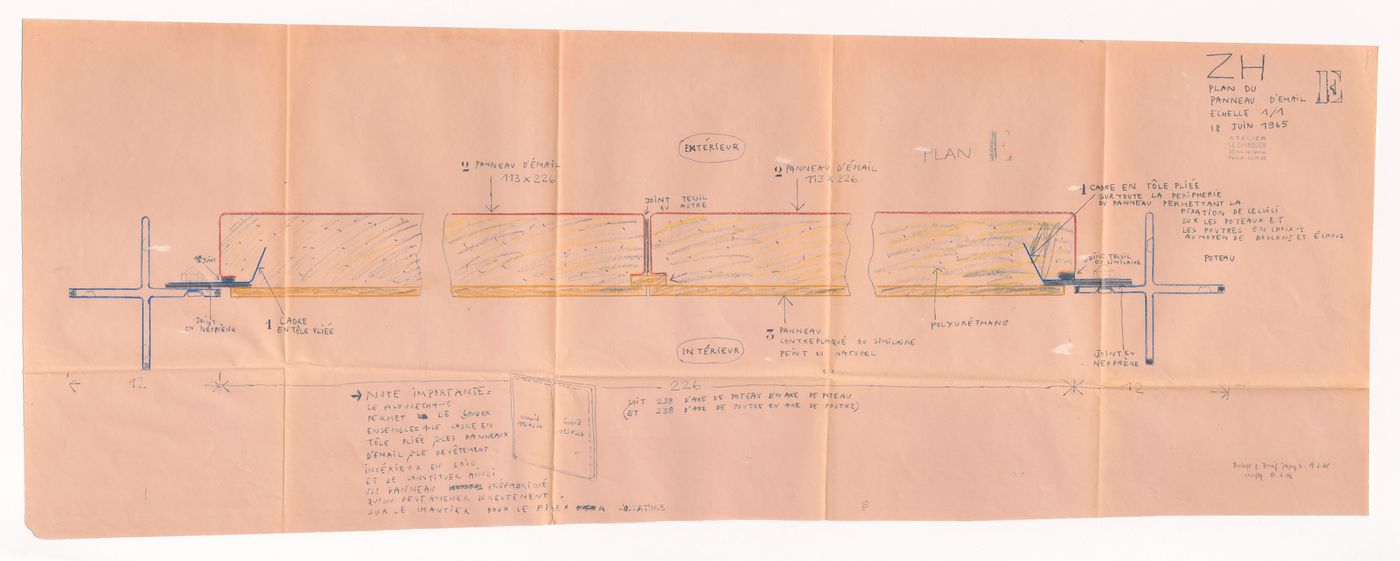 ZH
E
PLAN DU
PANNEAU D'EMAIL
ECHELLE 1/1
18 JUIN 1965
ATELIER
LE CORBUSIER
PLAN E
EXTÉRIEUR
2 PANNEAU D'ÉMAIL
113 x 226
2 PANNEAU D'ÉMAIL
113 x 226
JOINT TESSIL
OU AUTRE
1 CADRE EN TÔLE PLIÉE
SUR TOUTE LA PERIPHERIE
DU PANNEAU PERMETTANT LA
FIXATION DE CELUICI
SUR LES POTEAUX ET
LES POUTRES EN CROIX +
AU MOYEN DE BOULONS ET ÉCROUS
JOINT
JOINT TESSIL
OU SIMILAIRE
POTEAU
JOINT
EN NÉOPRÈNE
1 CADRE
EN TÔLE PLIÉE
3 PANNEAU
CONTREPLAQUÉ OU SIMILAIRE
PEINT OU NATUREL
POLYURÉTHANE
JOINT EN
NÉOPRÈNE
INTÉRIEUR
12
226
12
SOIT 238 D'AXE DE POTEAU EN AXE DE POTEAU
(ET 238 D'AXE DE POUTRE EN AXE DE POUTRE)
→ NOTE IMPORTANTE =
LE POLYURETHANE
PERMET LE SOUDER
ENSEMBLE = 1-LE CADRE EN
TÔLE PLIÉE 2-LES PANNEAUX
D'EMAIL 3-LE REVÊTEMENT
INTÉRIEUR EN BOIS
ET DE CONSTITUER AINSI
UN PANNEAU PRÉFABRIQUÉ
QU'ON PEUT AMENER DIRECTEMENT
SUR LE CHANTIER POUR LE FIXER A
émail
113x226
émail
113x226